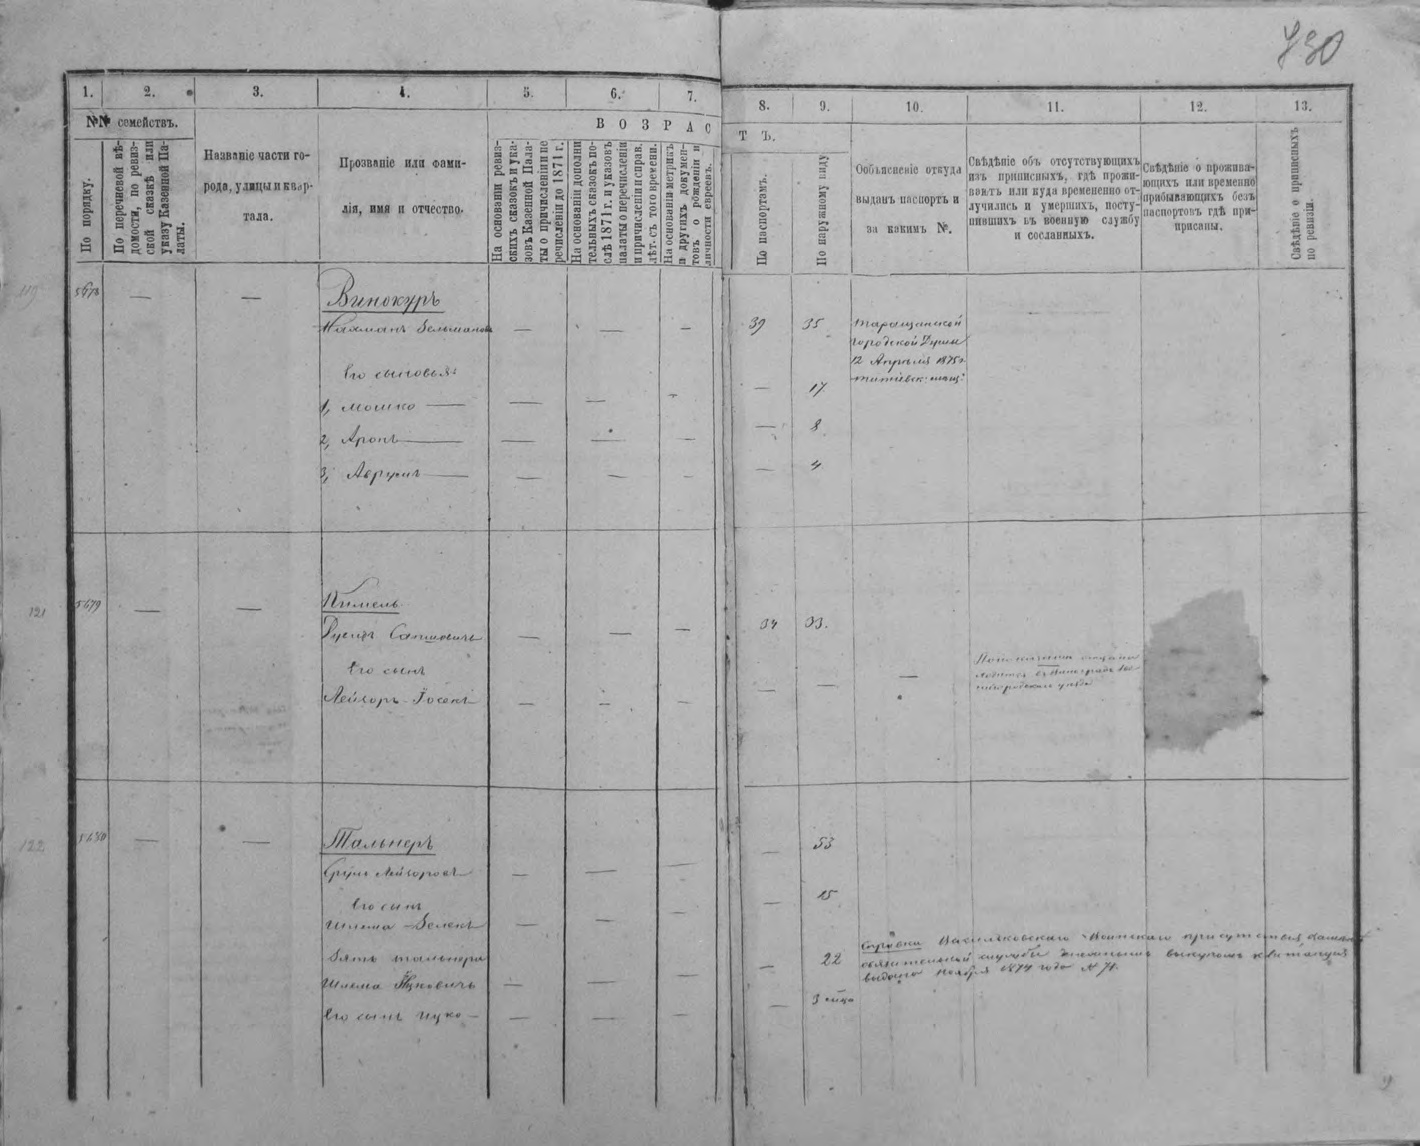 730
1. 2. 3. 4. 5. 6. 7. 8. 9. 10. 11. 12. 13.
№№ семействъ.
По порядку.
По перечневой вѣ-
домости, по ревиз-
ской сказкѣ или
указу Казенной Па-
латы.
Названіе части го-
рода, улицы и квар-
тала.
Прозваніе или фами-
лія, имя и отчество.
ВОЗРАСТЪ.
На основаніи ревиз-
скихъ сказокъ и ука-
зовъ Казенной Пала-
ты о причисленіи и пе
речисленіи до 1871 г.
На основаніи дополни
тельныхъ сказокъ по-
слѣ 1871 г. и указовъ
палаты о перечисленіи
и причисленіи и справ.
лѣт. съ того времени.
На основаніи метрикъ
и другихъ докумен-
товъ о рожденіи и
личности евреевъ.
По паспортамъ.
По наружному виду
Объясненіе откуда
выданъ паспортъ и
за какимъ №.
Свѣдѣніе объ отсутствующихъ
изъ приписныхъ, гдѣ прожи-
ваютъ или куда временно от-
лучились и умершихъ, посту-
пившихъ въ военную службу
и сосланныхъ.
Свѣдѣніе о прожива-
ющихъ или временно
прибывающихъ безъ
паспортовъ гдѣ при-
писаны.
Свѣдѣніе о приписныхъ
по ревизіи.
119 5678 — — Винокуръ
Нахманъ Зельмановъ — — — 39 35 Таращанской
городской Думы
12 Апрѣля 1875 г.
Его сыновья:
1, Мошко — — — — — 17
2, Аронъ — — — — — 8
3, Аврумъ — — — — — 4
121 5679 — — Кимель
— — — 34 33.
Его сынъ
Лейзоръ-Іосекъ — — — — — —
122 5680 — — Тальнеръ
Срулъ Лейзоровъ — — — — 53
Его сынъ
Шлема-Зелекъ — — — — 15
Справка Васильковскаго Воинскаго присутствія
Зять Тальнера
Шлема Ицковичъ — — — — 22
выдана Ноября 1874 года № 71.
Его сынъ Ицко — — — — — 3